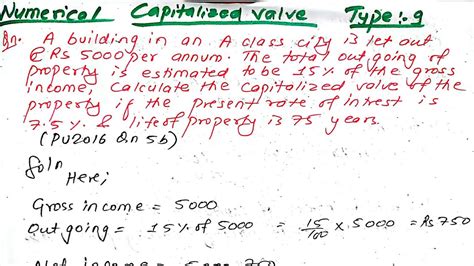 Numerical Capitalized valve Type:- 9
Qn. A building in an A class city is let out
@ Rs 5000 per annum. The total out going of
property is estimated to be 15% of the gross
income, Calculate the capitalized value of the
property if the present rate of intrest is
7.5% & life of property is 75 years.
(PU2016 Qn 5b)
Soln
Here;
Gross income = 5000
Out going = 15% of 5000 = 15/100 x 5000 = Rs 750